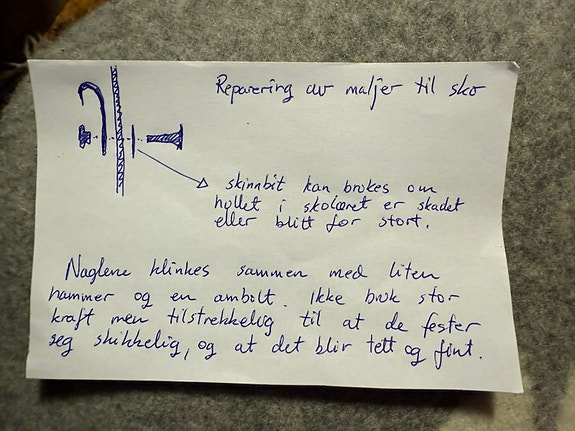 Reparering av maljer til sko
skinnbit kan brukes om
hullet i skolæret er skadet
eller blitt for stort.
Naglene klinkes sammen med liten
hammer og en ambolt. Ikke bruk stor
kraft men tilstrekkelig til at de fester
seg skikkelig, og at det blir tett og fint.